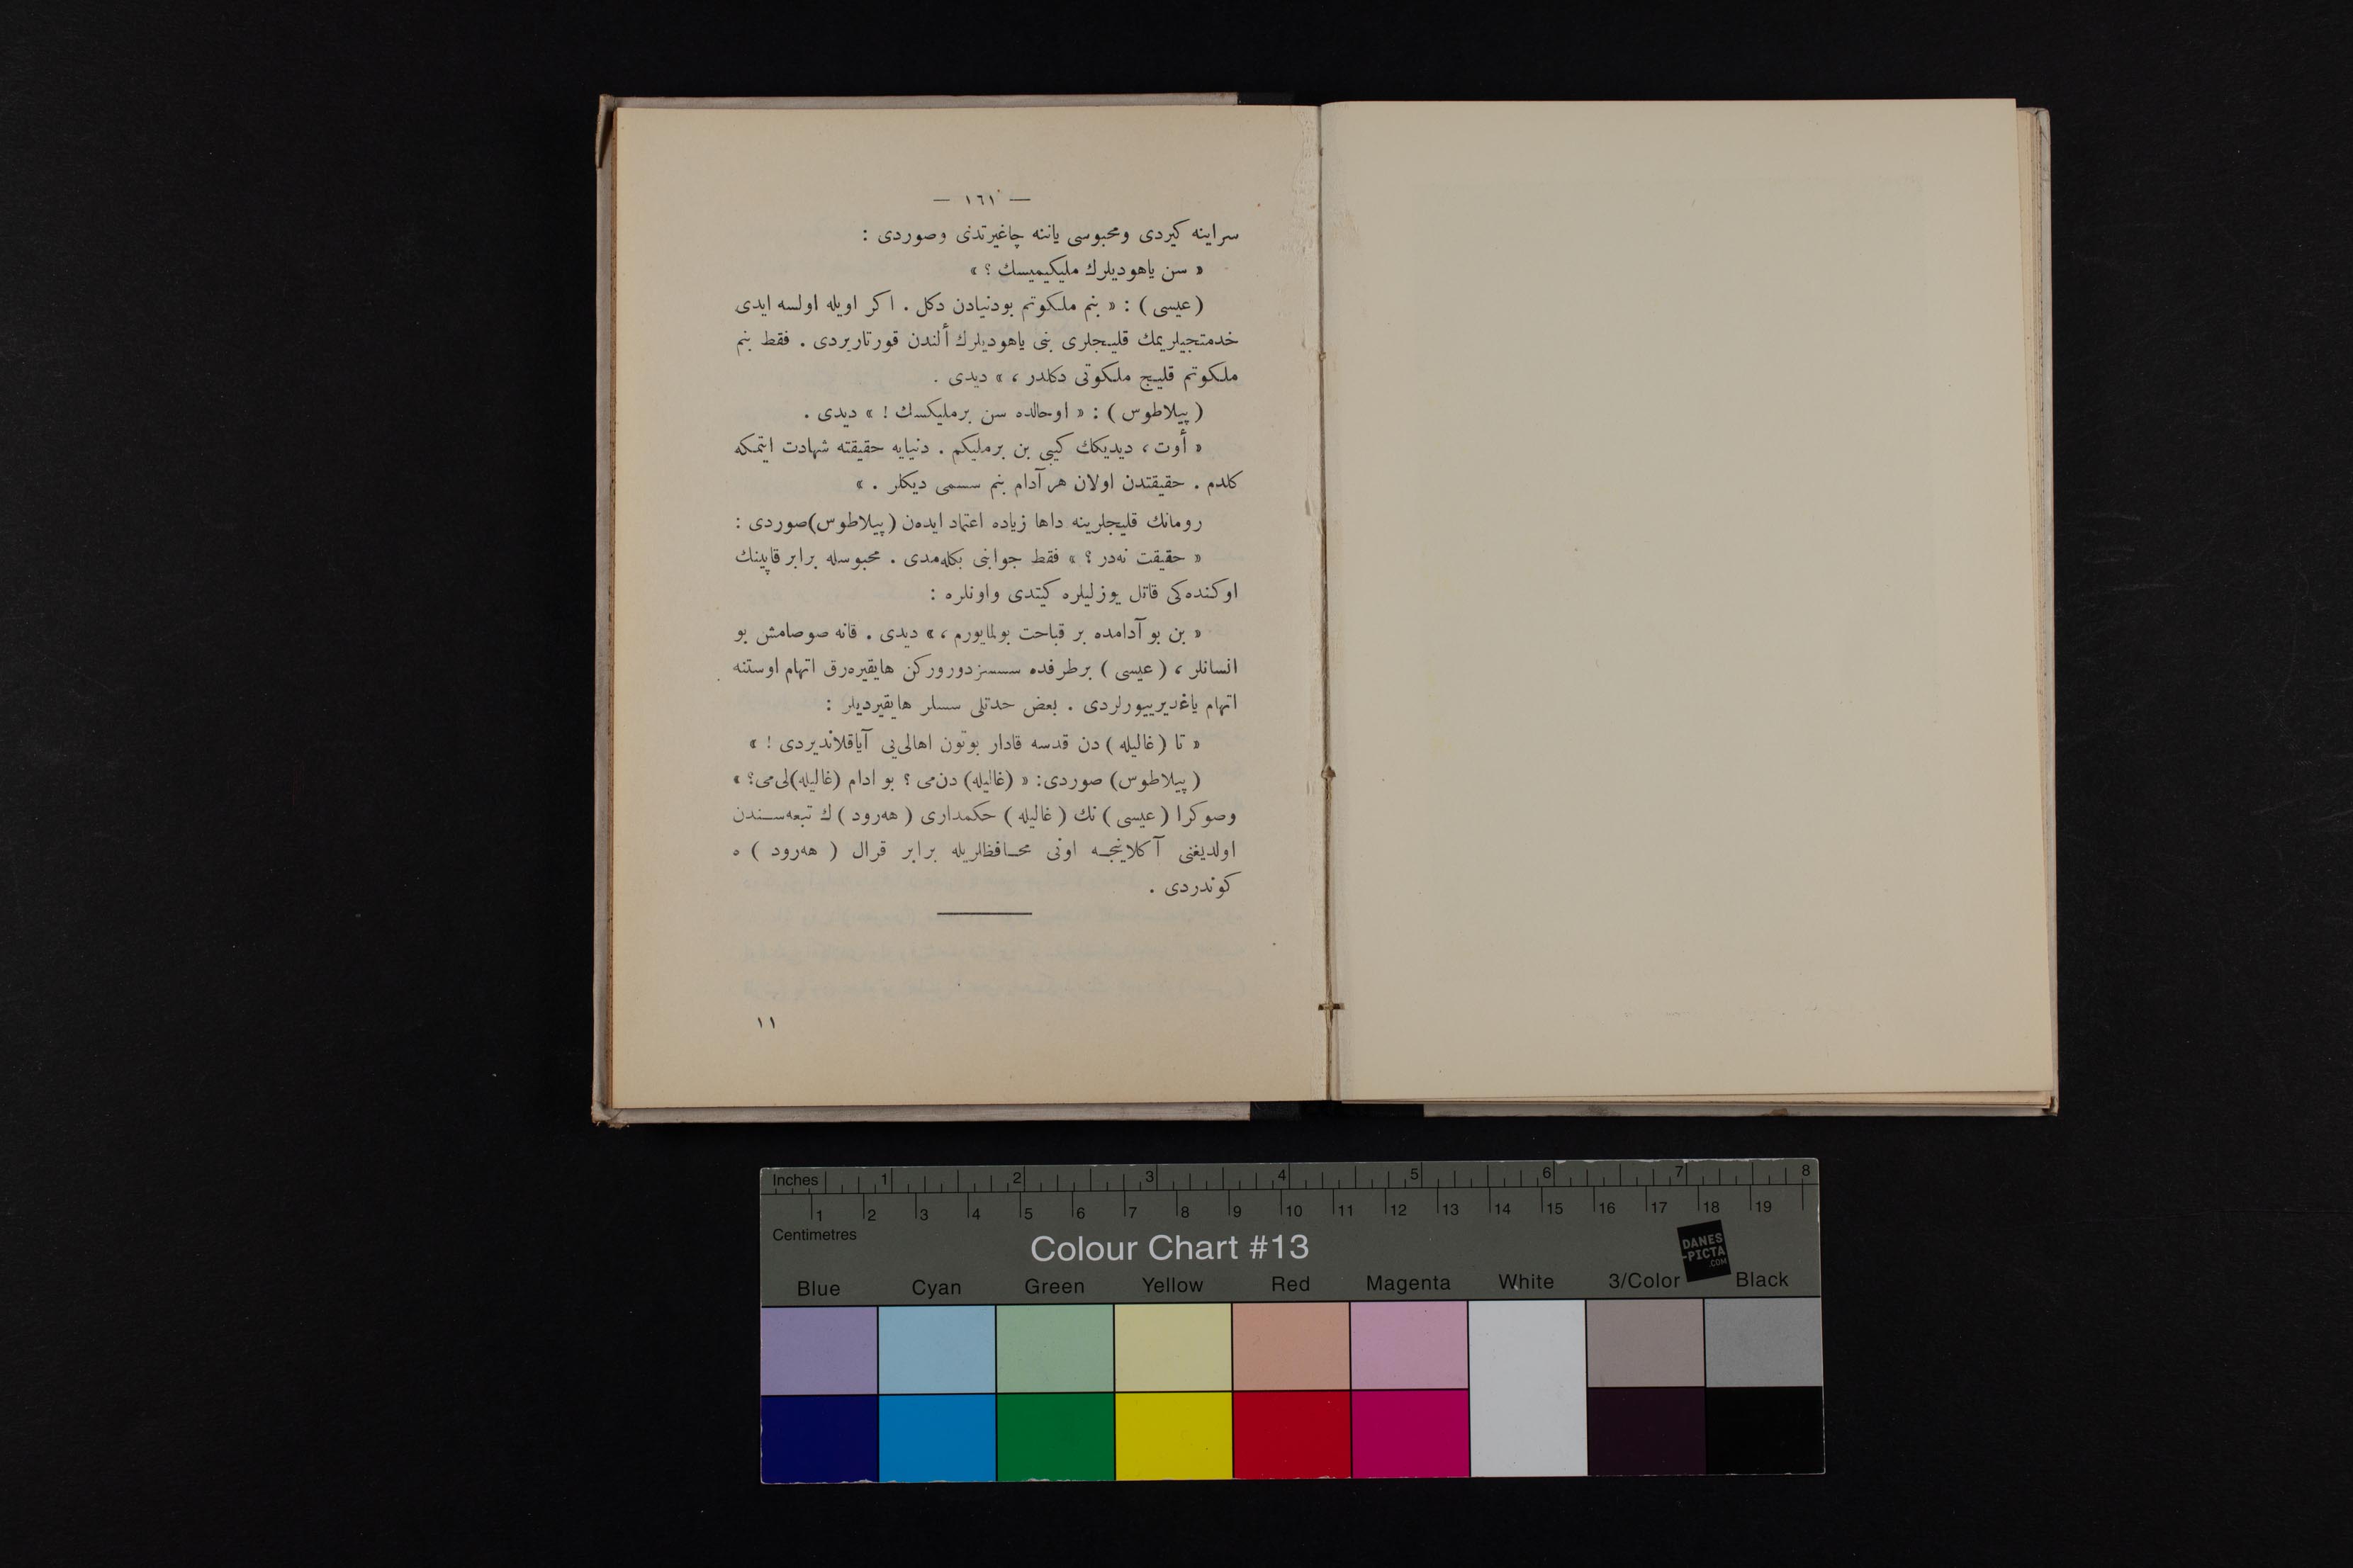 — ١٦١ —
سراينه كيردى ومحبوسى ياننه چاغيرتدى وصوردى :
« سن ياهوديلرك مليكيميسك ؟ »
(عيسى) : « بنم ملكوتم بودنيادن دكل . اكر اويله اولسه ايدى
خدمتجيلريمك قليجلرى بنى ياهوديلرك ألندن قورتاريردى . فقط بنم
ملكوتم قليج ملكوتى دكلدر ، » ديدى .
(پيلاطوس) : « اوحالده سن برمليكسك ! » ديدى .
« أوت ، ديديكك كيبى بن برمليكم . دنيايه حقيقته شهادت ايتمكه
كلدم . حقيقتدن اولان هر آدام بنم سسمى ديكلر . »
رومانك قليجلرينه داها زياده اعتماد ايده‌ن (پيلاطوس) صوردى :
« حقيقت نه‌در ؟ » فقط جوابنى بكله‌مدى . محبوسله برابر قاپينك
اوكنده‌كى قاتل يوزليلره كيتدى واونلره :
« بن بو آدامده بر قباحت بولمايورم ، » ديدى . قانه صوصامش بو
انسانلر ، (عيسى) برطرفده سسسز دوروركن هايقيره‌رق اتهام اوستنه
اتهام ياغديرييورلردى . بعض حدتلى سسلر هايقيرديلر :
« تا (غاليله) دن قدسه قادار بوتون اهالى‌يى آياقلانديردى ! »
(پيلاطوس) صوردى : « (غاليله) دن‌مى ؟ بو ادام (غاليله)لى‌مى؟ »
وصوكرا (عيسى) نك (غاليله) حكمدارى (هه‌رود) ك تبعه‌سندن
اولديغنى آكلاينجه اونى محافظلريله برابر قرال (هه‌رود) ه
كوندردى .
١١
Inches 1 2 3 4 5 6 7 8
1 2 3 4 5 6 7 8 9 10 11 12 13 14 15 16 17 18 19
Centimetres
Colour Chart #13
DANES
-PICTA
.COM
Blue Cyan Green Yellow Red Magenta White 3/Color Black